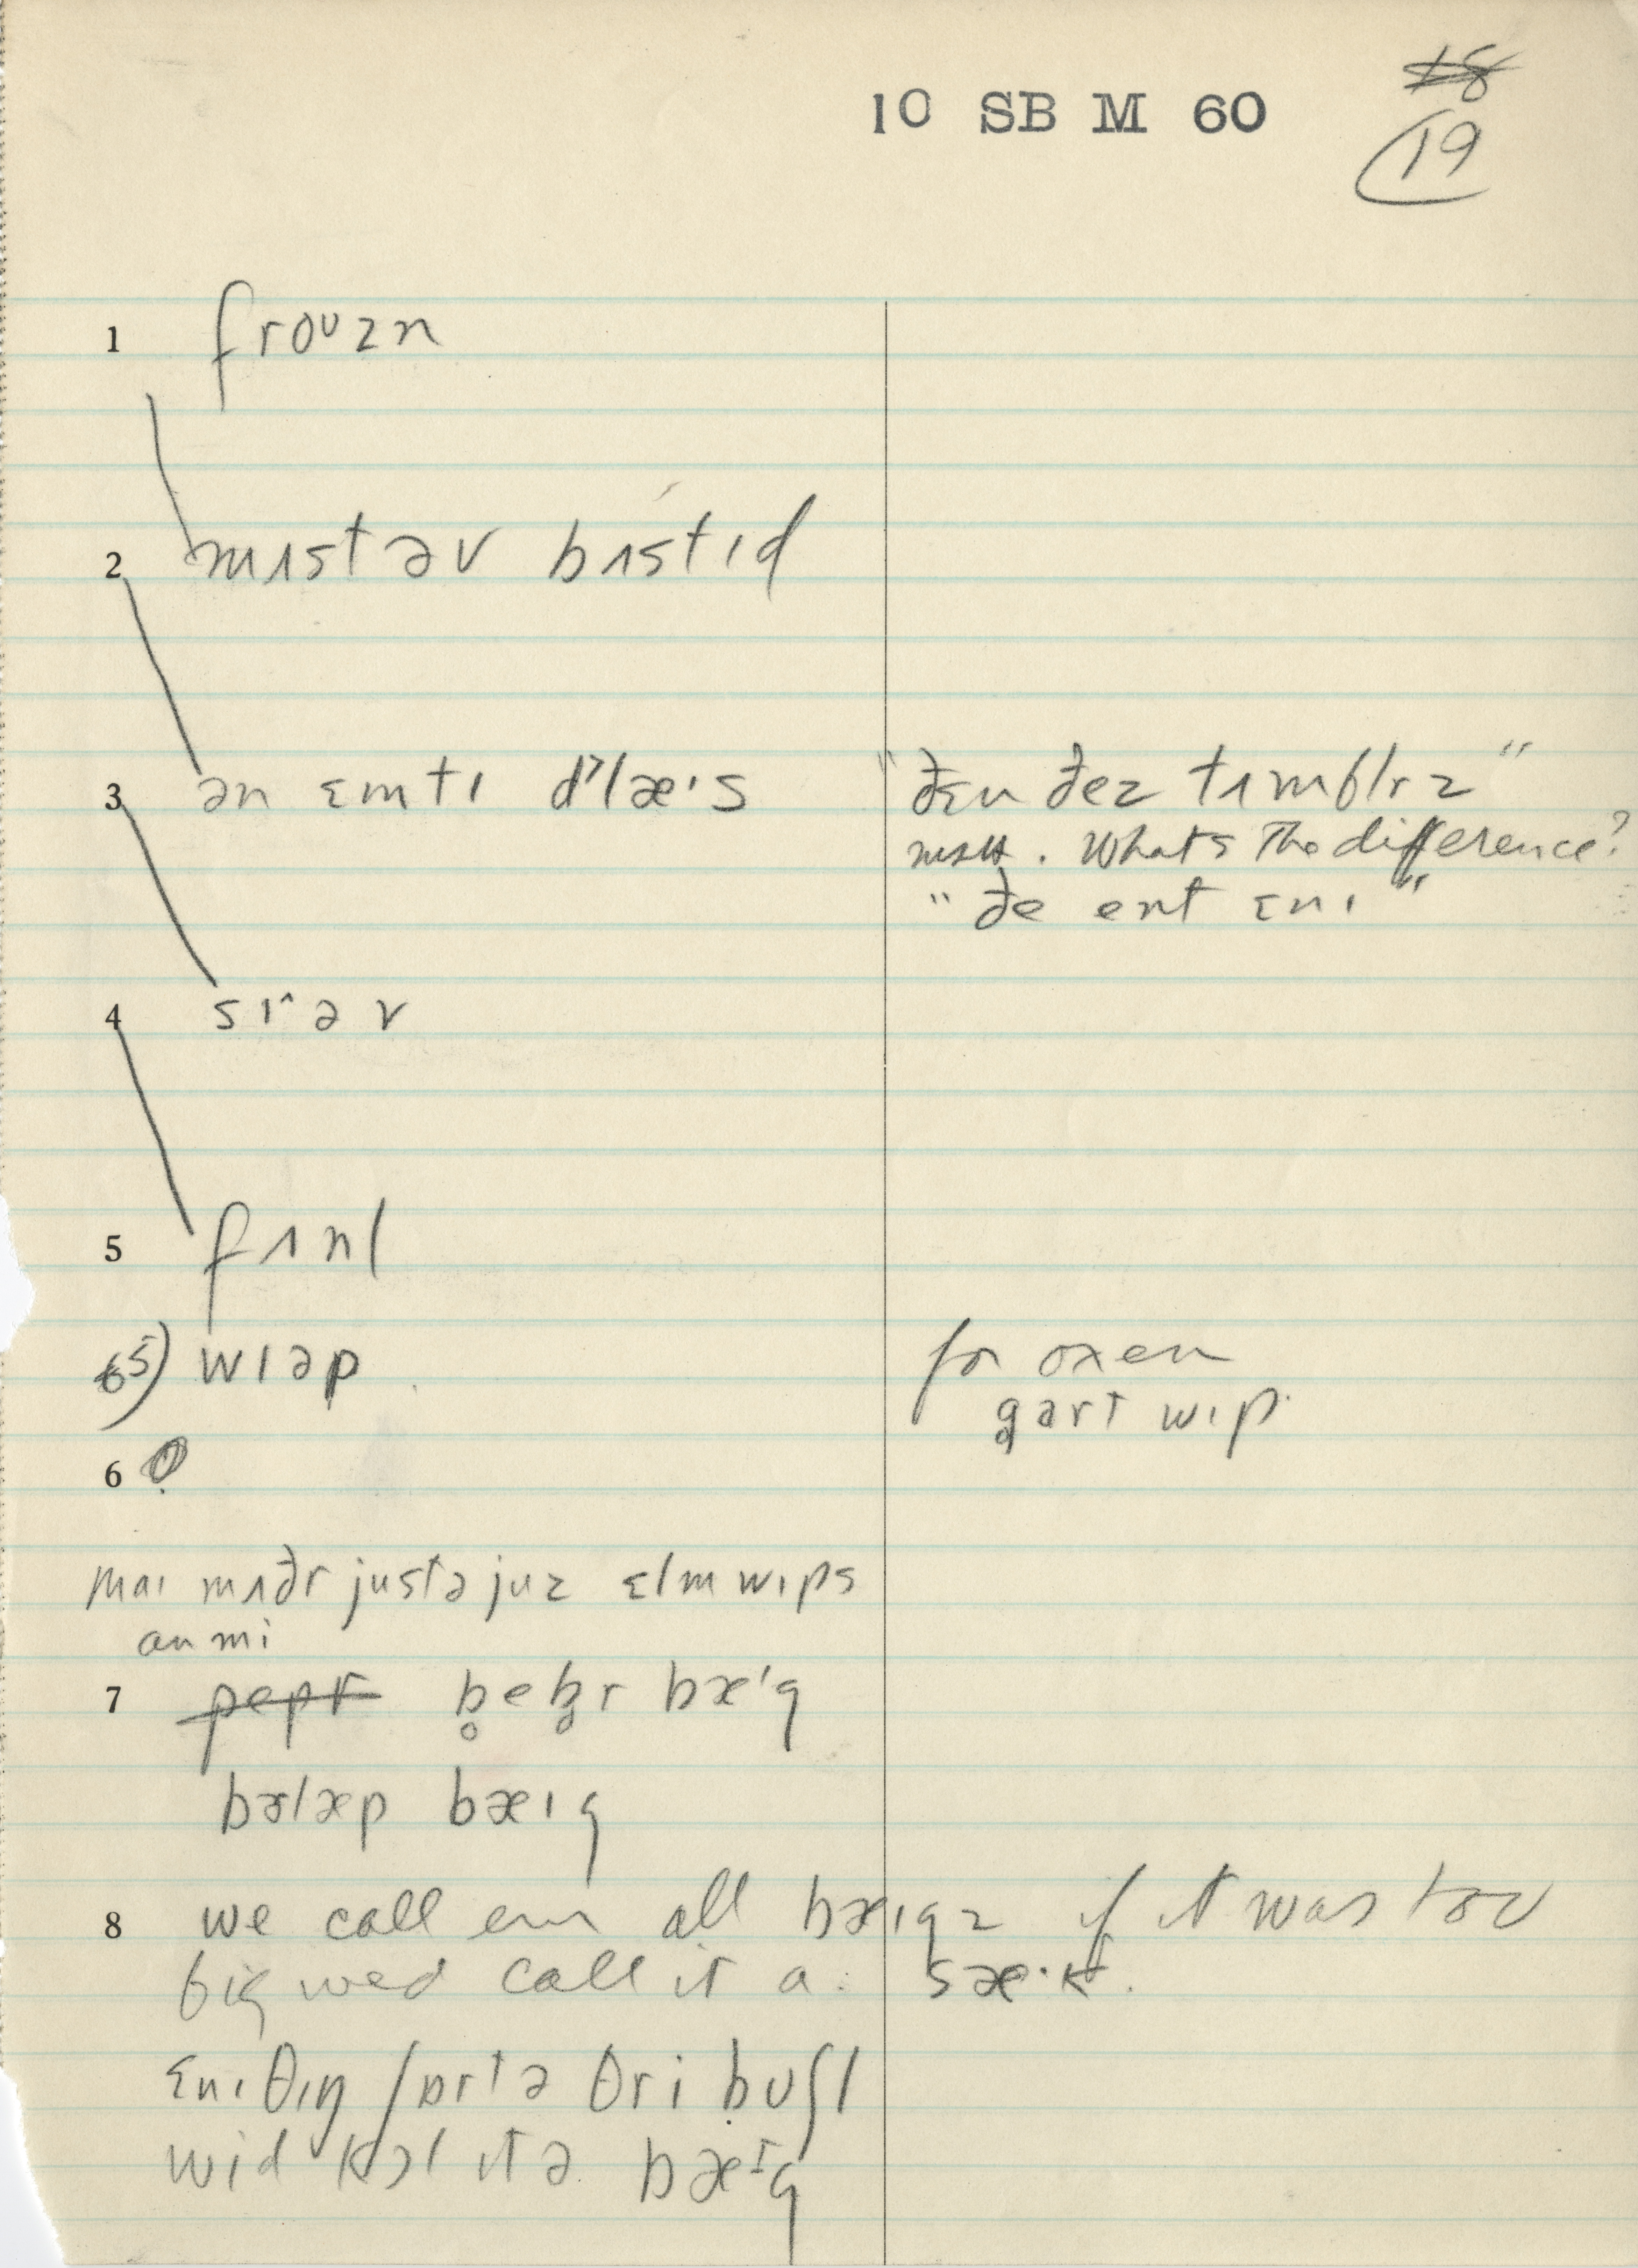 10 SB M 60
18
19
1 froᴜzn
2 mʌst əv bʌstɪd
3 ən ɛmtɪ ɡlæˑs "ðɛn ðez tʌmblrz"
What's the difference?
"ðe ent ɛnɪ"
4 sɪˆəv
5 fʌnl
65) wɪəp for oxen
gart wɪp
6 0
maɪ mʌðr justə juz ɛlm wɪps
an mi
7 pepr b̥eb̥r bæˈg
bɜlæp bæɪg
8 we call em all bæɪgz if it was too
big wed call it a sæˑk.
ɛnɪθɪŋ ʃɒrt ə θri buʃl
wid kɔl ɪt ə bæɪg